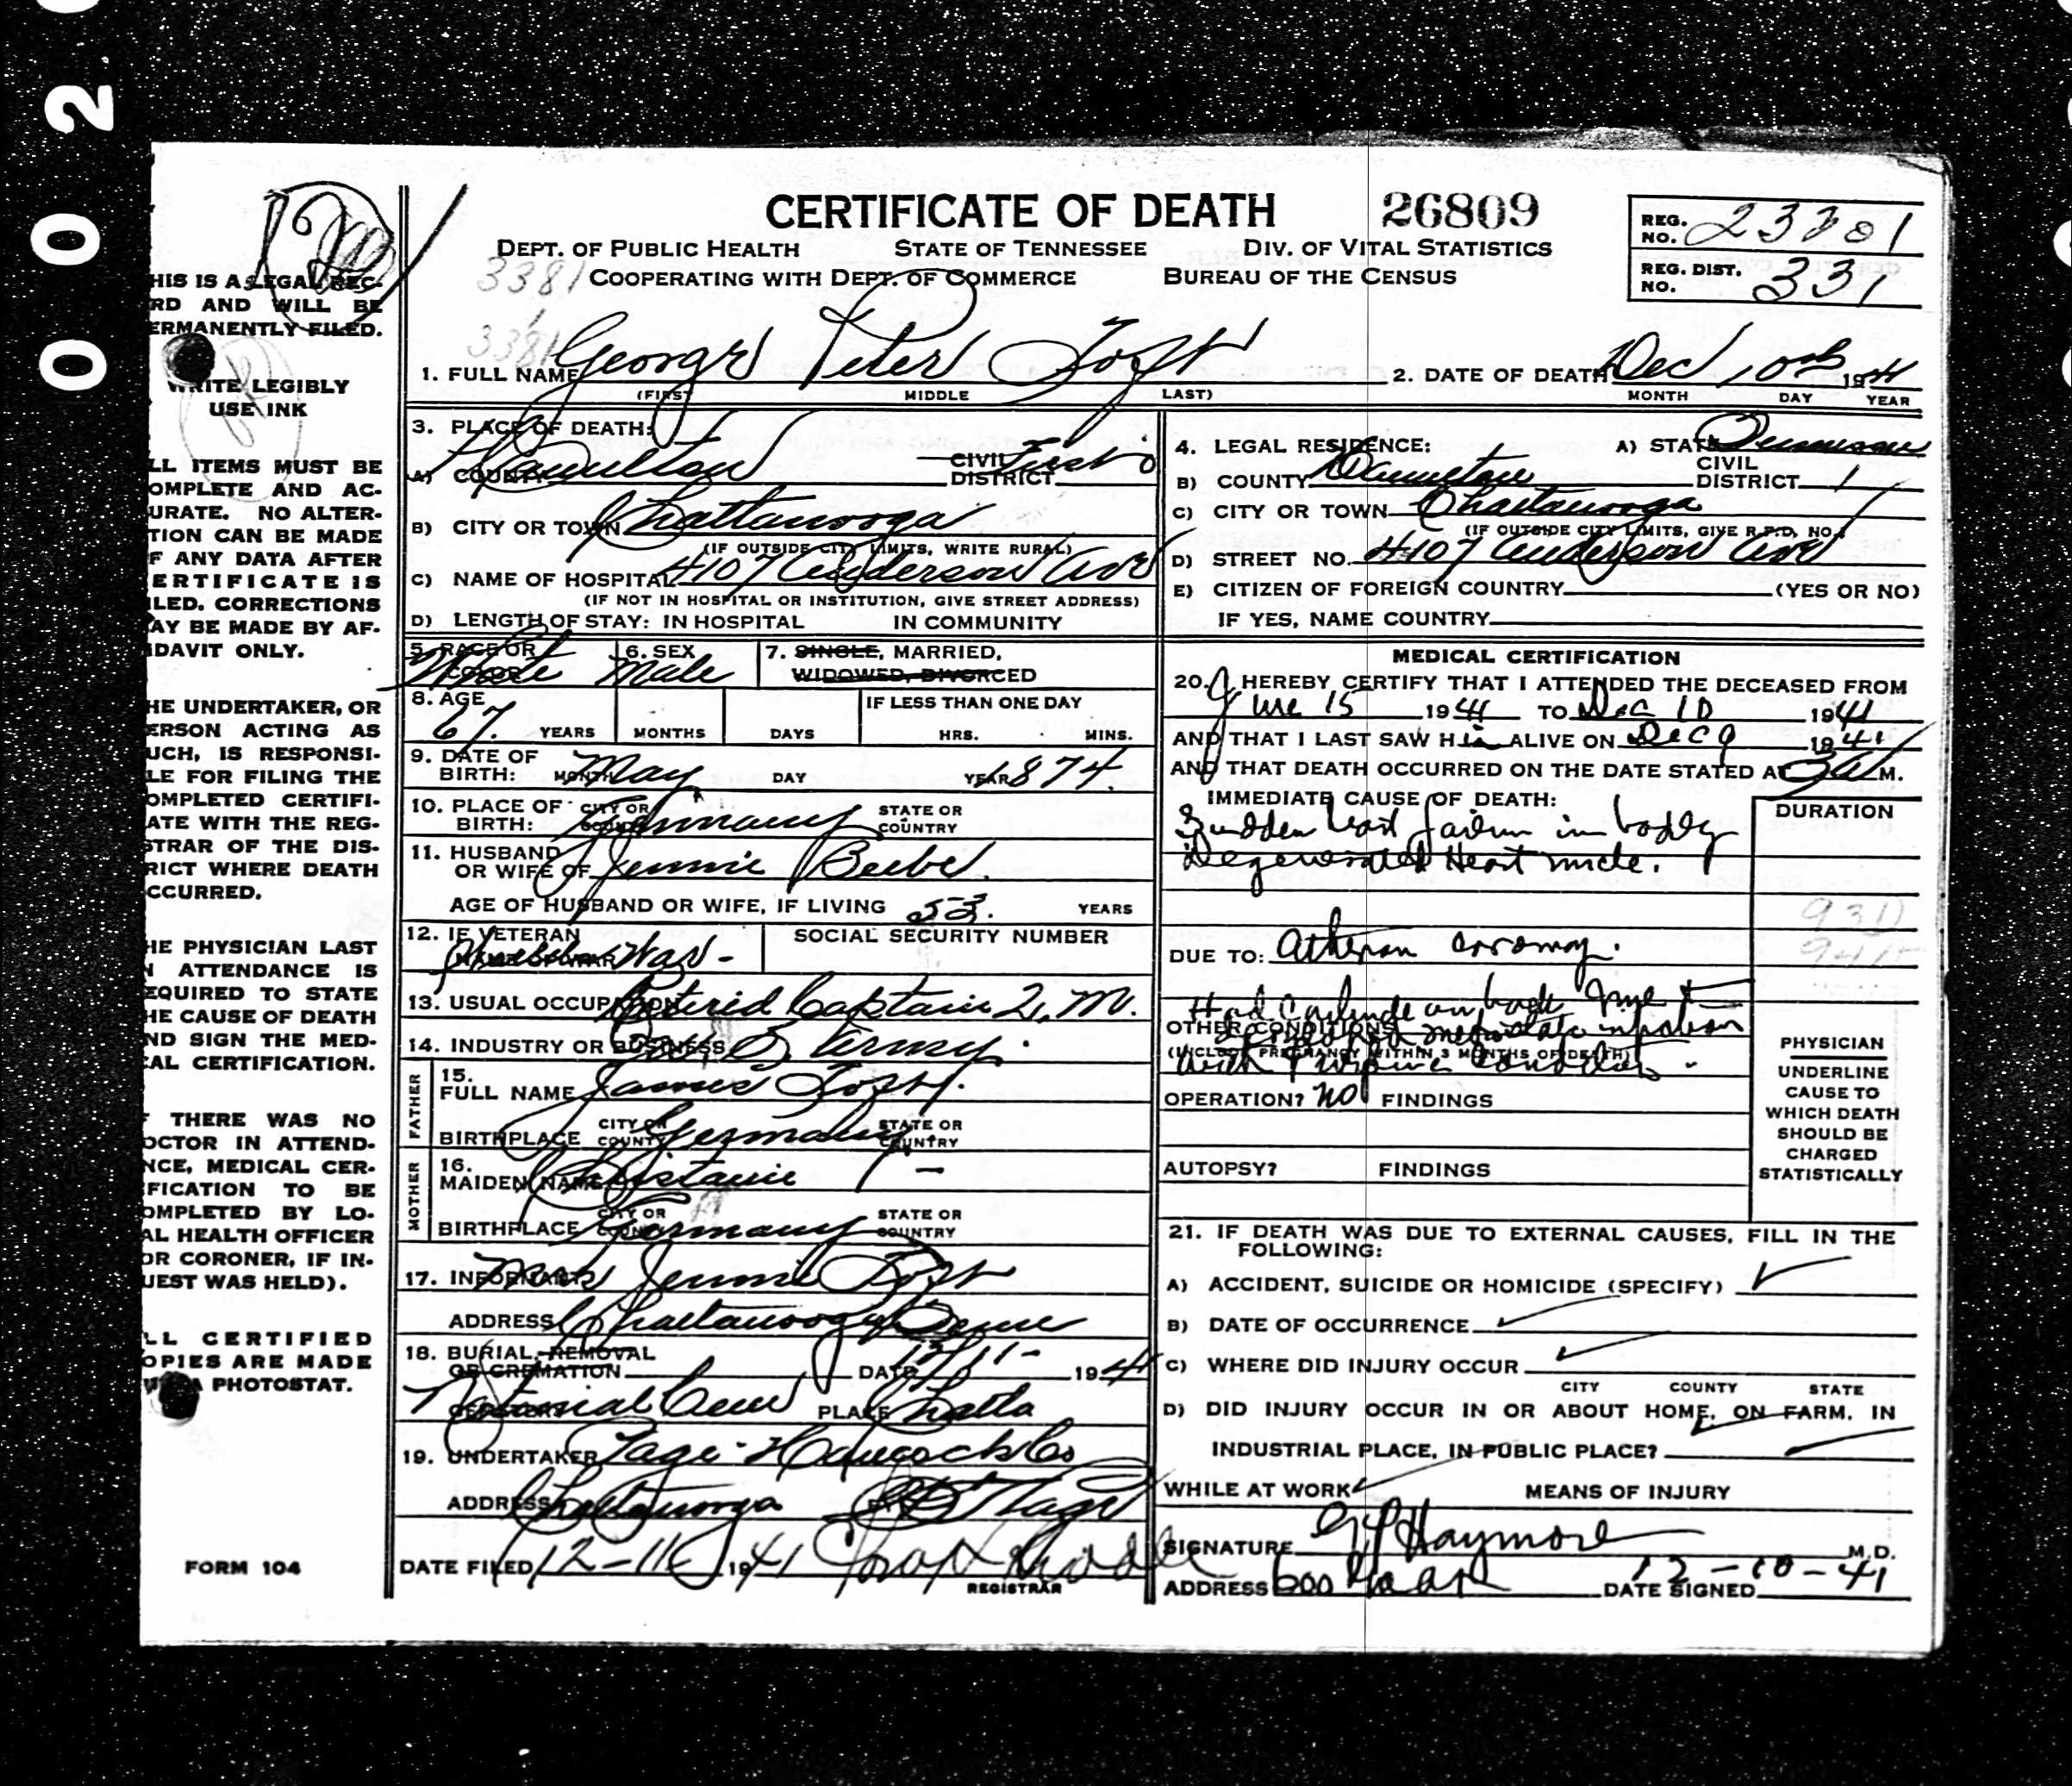 002
CERTIFICATE OF DEATH 26809
DEPT. OF PUBLIC HEALTH STATE OF TENNESSEE DIV. OF VITAL STATISTICS
COOPERATING WITH DEPT. OF COMMERCE BUREAU OF THE CENSUS
3381
3381
REG. NO.
REG. DIST. NO. 331
HIS IS A LEGAL REC-
RD AND WILL BE
ERMANENTLY FILED.
WRITE LEGIBLY
USE INK
LL ITEMS MUST BE
OMPLETE AND AC-
URATE. NO ALTER-
TION CAN BE MADE
F ANY DATA AFTER
ERTIFICATE IS
ILED. CORRECTIONS
AY BE MADE BY AF-
IDAVIT ONLY.
HE UNDERTAKER, OR
ERSON ACTING AS
UCH, IS RESPONSI-
LE FOR FILING THE
OMPLETED CERTIFI-
ATE WITH THE REG-
STRAR OF THE DIS-
RICT WHERE DEATH
CCURRED.
HE PHYSICIAN LAST
N ATTENDANCE IS
EQUIRED TO STATE
HE CAUSE OF DEATH
ND SIGN THE MED-
CAL CERTIFICATION.
F THERE WAS NO
OCTOR IN ATTEND-
NCE, MEDICAL CER-
FICATION TO BE
OMPLETED BY LO-
AL HEALTH OFFICER
OR CORONER, IF IN-
UEST WAS HELD).
LL CERTIFIED
OPIES ARE MADE
A PHOTOSTAT.
FORM 104
1. FULL NAME George Peter
(FIRST MIDDLE LAST)
2. DATE OF DEATH Dec 10th 1941
MONTH DAY YEAR
3. PLACE OF DEATH:
A) COUNTY Hamilton CIVIL DISTRICT First
B) CITY OR TOWN Chattanooga
(IF OUTSIDE CITY LIMITS, WRITE RURAL)
C) NAME OF HOSPITAL 4107 Anderson Ave
(IF NOT IN HOSPITAL OR INSTITUTION, GIVE STREET ADDRESS)
D) LENGTH OF STAY: IN HOSPITAL IN COMMUNITY
5. RACE OR COLOR White 6. SEX Male 7. SINGLE, MARRIED, WIDOWED, DIVORCED
8. AGE 67. YEARS MONTHS DAYS IF LESS THAN ONE DAY HRS. MINS.
9. DATE OF BIRTH: MONTH May DAY YEAR 1874.
10. PLACE OF BIRTH: CITY OR COUNTY Germany STATE OR COUNTRY
11. HUSBAND OR WIFE OF Jennie Beebe.
AGE OF HUSBAND OR WIFE, IF LIVING 53. YEARS
12. IF VETERAN NAME OF WAR War - SOCIAL SECURITY NUMBER
13. USUAL OCCUPATION Retired Captain Q. M.
14. INDUSTRY OR BUSINESS U. S. Army.
FATHER
15. FULL NAME James
BIRTHPLACE CITY OR COUNTY Germany STATE OR COUNTRY
MOTHER
16. MAIDEN NAME
BIRTHPLACE CITY OR COUNTY Germany STATE OR COUNTRY
17. INFORMANT Mrs Jennie
ADDRESS Chattanooga Tenn
18. BURIAL, REMOVAL OR CREMATION DATE 12/11- 1941
CEMETERY National Cem PLACE Chatta
19. UNDERTAKER Hancock Co
ADDRESS Chattanooga BY
DATE FILED 12-11 1941
REGISTRAR
4. LEGAL RESIDENCE: A) STATE Tennessee
B) COUNTY Hamilton CIVIL DISTRICT 1
C) CITY OR TOWN Chattanooga
(IF OUTSIDE CITY LIMITS, GIVE R.F.D. NO.)
D) STREET NO. 4107 Anderson Ave
E) CITIZEN OF FOREIGN COUNTRY (YES OR NO)
IF YES, NAME COUNTRY
MEDICAL CERTIFICATION
20. I HEREBY CERTIFY THAT I ATTENDED THE DECEASED FROM
June 15 1941 TO Dec 10 1941
AND THAT I LAST SAW HIM ALIVE ON Dec 9 1941
AND THAT DEATH OCCURRED ON THE DATE STATED AT M.
IMMEDIATE CAUSE OF DEATH: DURATION
Sudden heart failure in badly
Degenerated Heart muscle.
DUE TO:
OTHER CONDITIONS
(INCLUDE PREGNANCY WITHIN 3 MONTHS OF DEATH)
OPERATION? no FINDINGS
AUTOPSY? FINDINGS
PHYSICIAN
UNDERLINE
CAUSE TO
WHICH DEATH
SHOULD BE
CHARGED
STATISTICALLY
21. IF DEATH WAS DUE TO EXTERNAL CAUSES, FILL IN THE
FOLLOWING:
A) ACCIDENT, SUICIDE OR HOMICIDE (SPECIFY)
B) DATE OF OCCURRENCE
C) WHERE DID INJURY OCCUR
CITY COUNTY STATE
D) DID INJURY OCCUR IN OR ABOUT HOME, ON FARM, IN
INDUSTRIAL PLACE, IN PUBLIC PLACE?
WHILE AT WORK MEANS OF INJURY
SIGNATURE Haymore M.D.
ADDRESS 600 DATE SIGNED 12-10-41